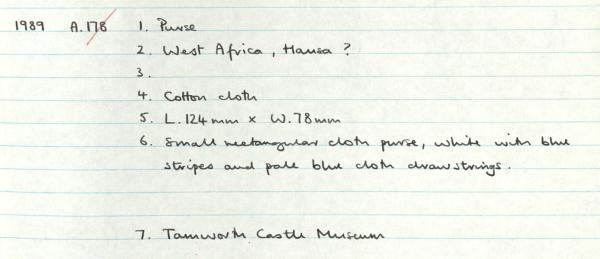 1989 A.178 1. Purse
2. West Africa, Hausa ?
3.
4. Cotton cloth
5. L.124mm × W.78mm
6. Small rectangular cloth purse, white with blue
stripes and pale blue cloth drawstrings.
7. Tamworth Castle Museum